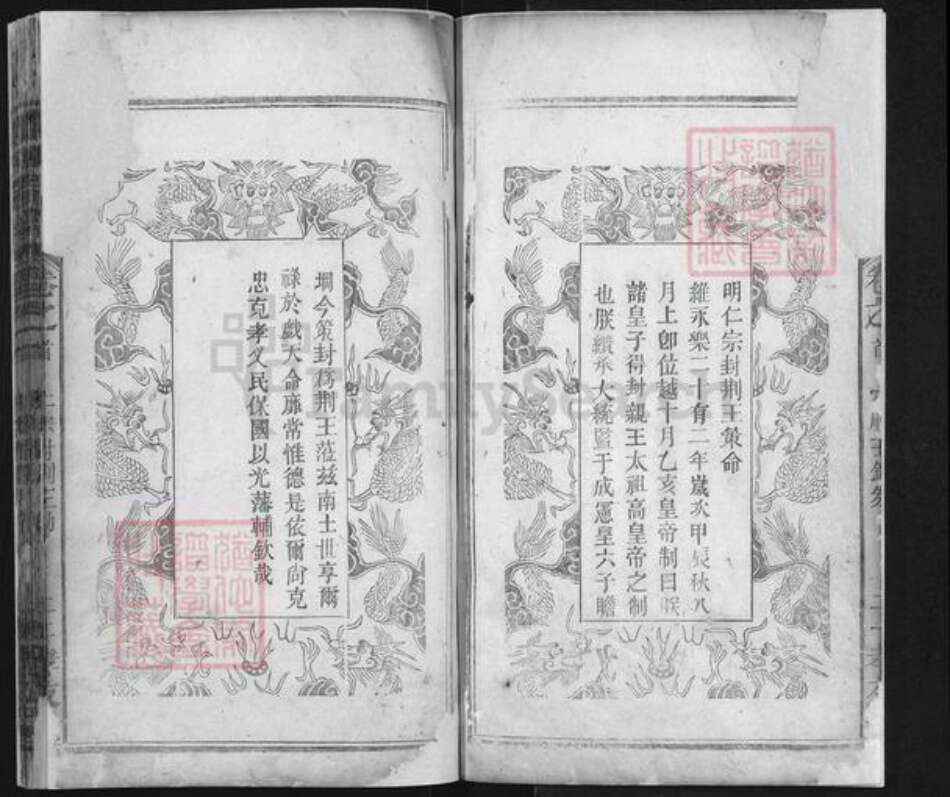 明仁宗封荆王策命
維永樂二十有二年歲次甲辰秋八
月上卽位越十月乙亥皇帝制曰朕
諸皇子得封親王太祖高皇帝之制
也朕纘承大統曁于成憲皇六子瞻
堈今策封爲荆王蒞茲南土世享爾
祿於戲天命靡常惟德是依爾尙克
忠克孝乂民保國以光藩輔欽哉
FamilySearch